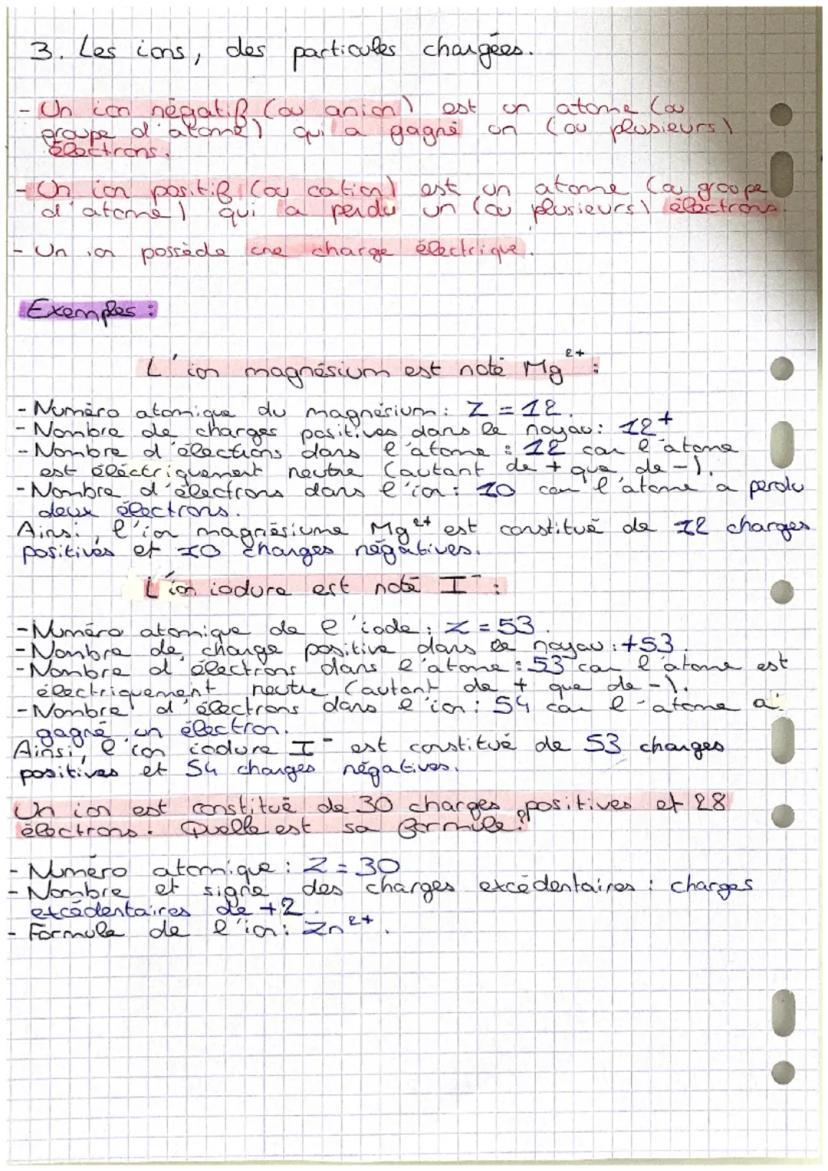 3. Les ions, des particules chargées.
- Un ion négatif (ou anion) est un atome (ou
groupe d'atome) qui a gagné un (ou plusieurs)
électrons.
- Un ion positif (ou cation) est un atome (ou groupe
d'atome) qui a perdu un (ou plusieurs) électrons.
- Un ion possède une charge électrique.
Exemples :
L'ion magnésium est noté Mg²⁺ :
- Numéro atomique du magnésium : Z = 12.
- Nombre de charges positives dans le noyau : 12⁺
- Nombre d'élections dans l'atome : 12 car l'atome
est éléctriquement neutre (autant de + que de -).
- Nombre d'électrons dans l'ion : 10 car l'atome a perdu
deux électrons.
Ainsi, l'ion magnésiume Mg²⁺ est constitué de 12 charges
positives et 10 charges négatives.
L'ion iodure est noté I⁻ :
- Numéro atomique de l'iode : Z = 53.
- Nombre de charge positive dans le noyau : +53.
- Nombre d'électrons dans l'atome : 53 car l'atome est
électriquement neutre (autant de + que de -).
- Nombre d'électrons dans l'ion : 54 car l'atome a
gagné un électron.
Ainsi, l'ion iodure I⁻ est constitué de 53 charges
positives et 54 charges négatives.
Un ion est constitué de 30 charges positives et 28
électrons. Quelle est sa formule ?
- Numéro atomique : Z = 30
- Nombre et signe des charges excédentaires : charges
excédentaires de +2.
- Formule de l'ion : Zn²⁺.